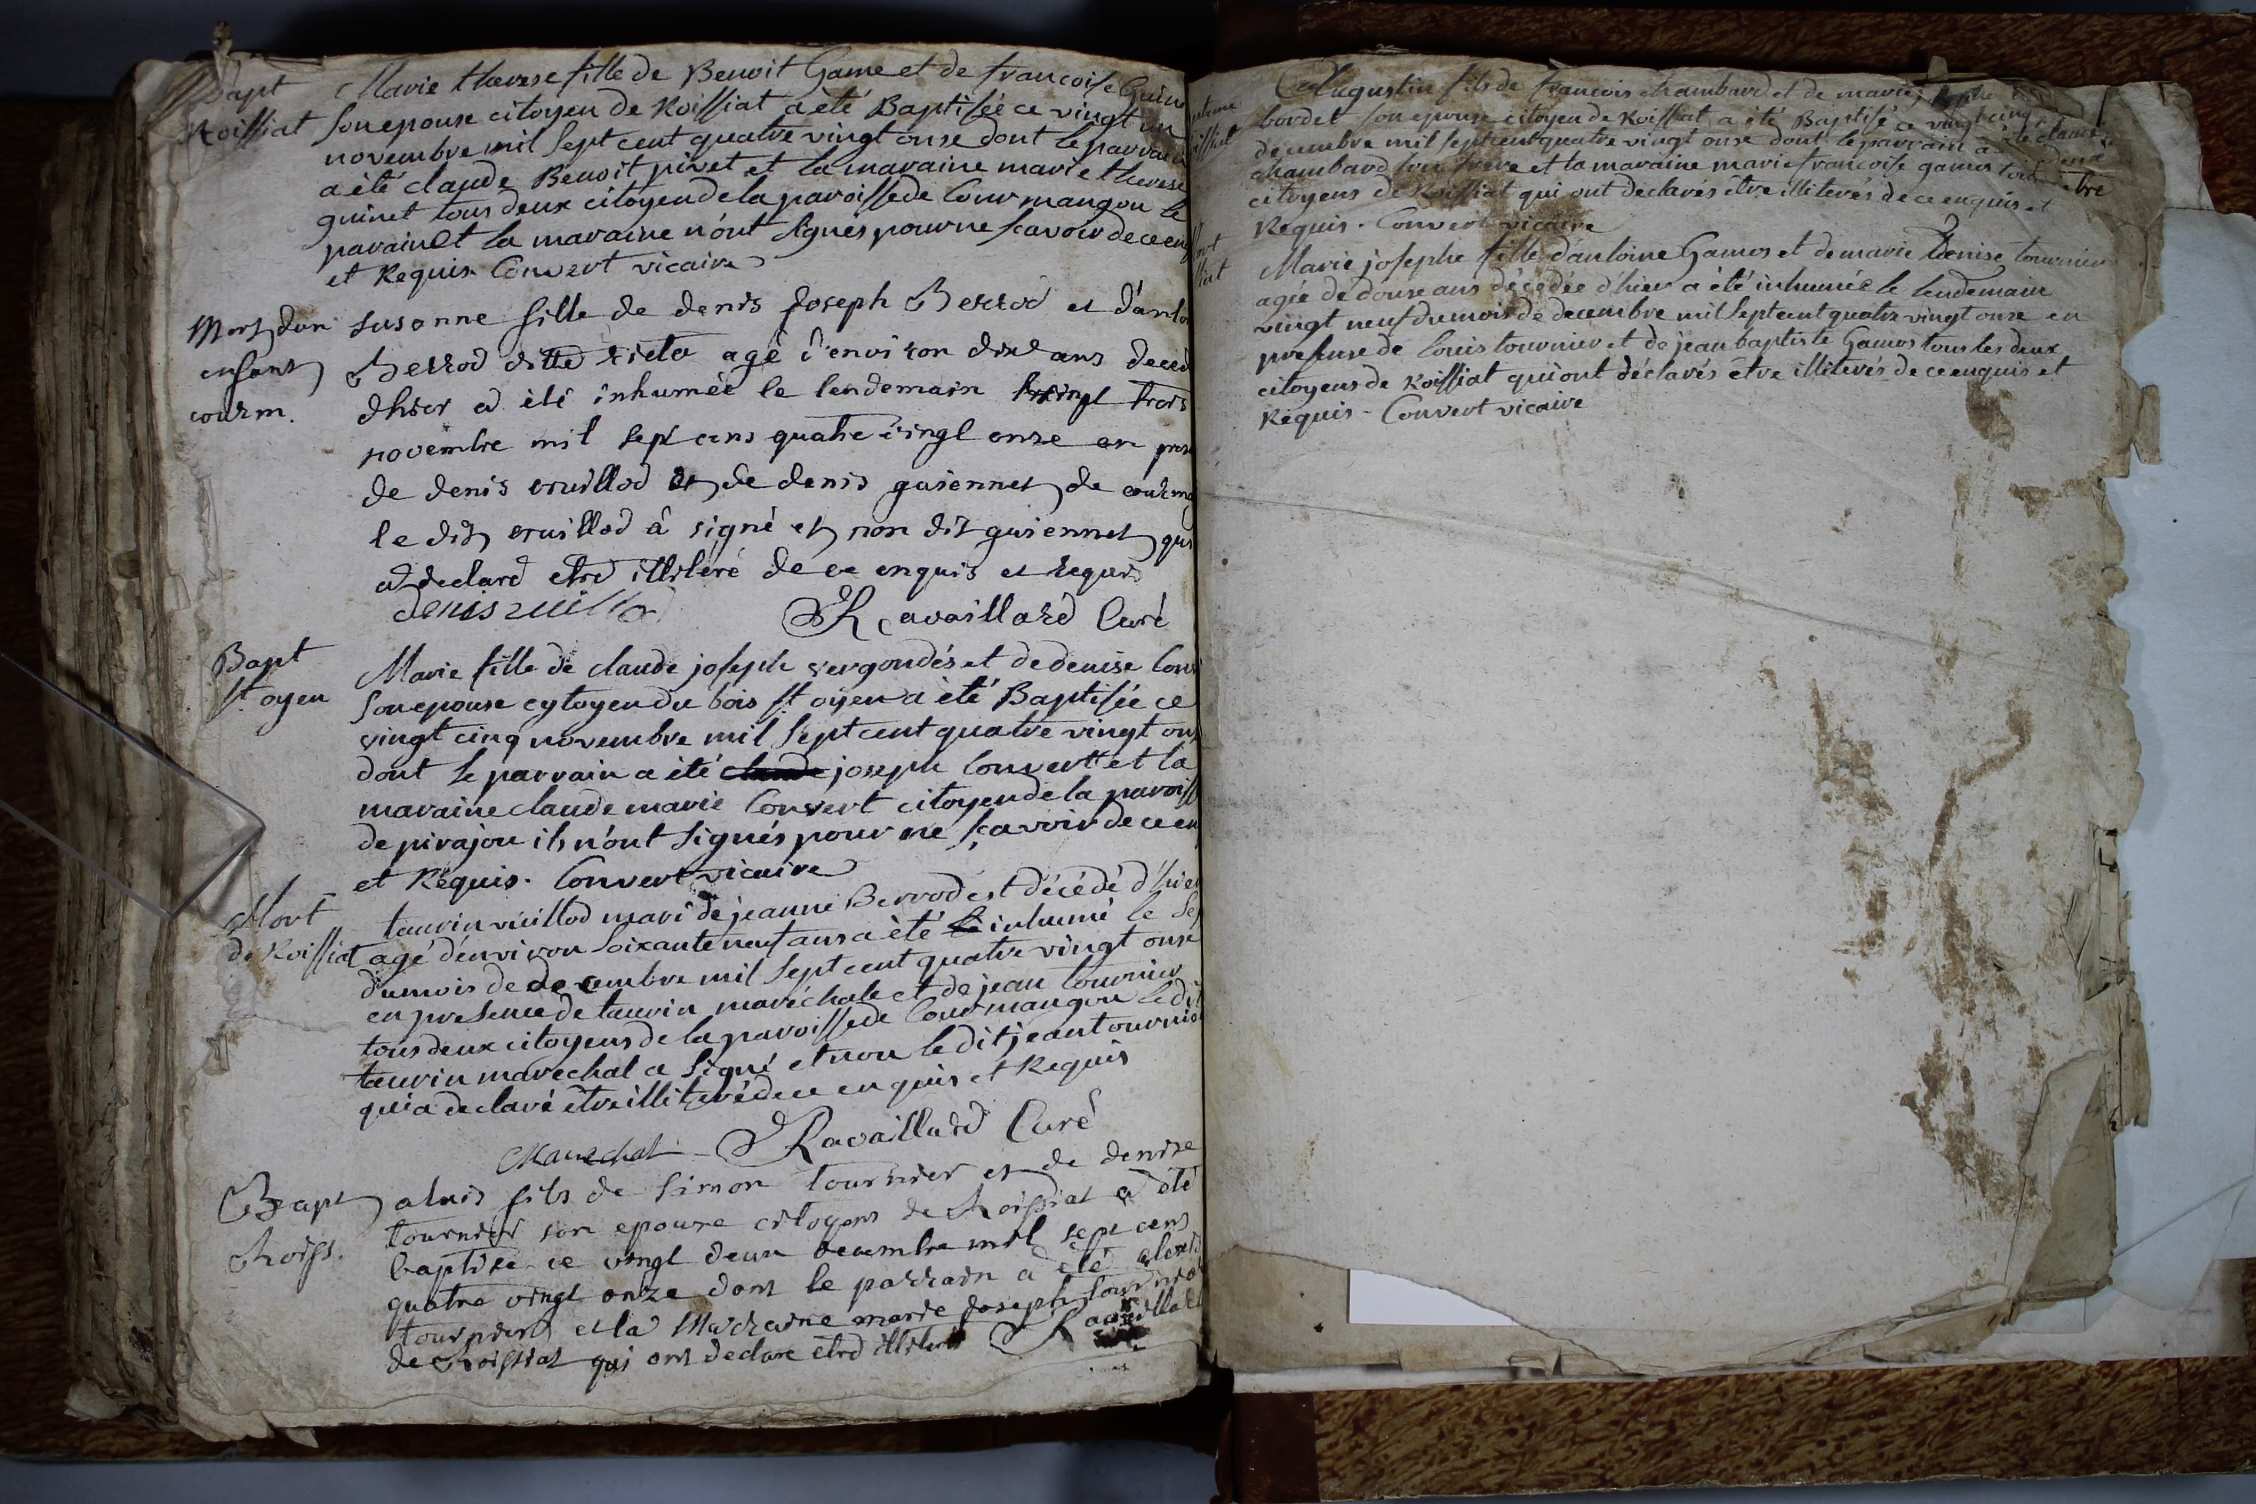 Bapt
Roissiat
Marie therese fille de Benoit Game et de francoise Guine
son epouse citoyen de Roissiat a été Baptisée ce vingt un
novembre mil sept cent quatre vingt onse dont le parrain
a été claude Benoit pivet et la maraine marie therese
guinet tous deux citoyen de la paroisse de Courmangou le
parain et la maraine n'ont signés pour ne scavoir de ce en
et Requis Convert vicaire
Mort d'un
enfant
courm.
susanne fille de denis Joseph Berrod et d'anto
Berrod ditte agé d'environ dix ans deced
d'hier a été inhumée le lendemain vingt trois
novembre mil sept cens quatre vingt onze en pres
de denis vuillod et de denis guiennet de courma
le dit vuillod â signé et non dit guiennet qui
a declaré etre illiteré de ce enquis et requis
denis vuillod
Ravaillard Curé
Bapt
st oyen
Marie fille de claude joseph vergondés et de denise Conv
son epouse cytoyen du bois st oyen a été Baptisée ce
vingt cinq novembre mil sept cent quatre vingt ons
dont le parrain a été claude joseph Convert et la
maraine claude marie Convert citoyen de la paroiss
de pirajou ils n'ont signés pour ne scavoir de ce en
et Requis. Convert vicaire
Mort
de Roissiat
taurin vuillod mari de jeanne Berrod est décédé d'hier
agé d'environ soixante neuf ans a été le inhumé le sep
du mois de decembre mil sept cent quatre vingt onse
en presence de taurin maréchale et de jean tournier
tous deux citoyens de la paroisse de Courmangou le dit
taurin marechal a signé et non le dit jean tournier
qui a declaré être illiteré de ce enquis et Requis
Marechal Ravaillard Curé
Bapt
Roiss.
aluis fils de simon tournier et de denise
tournier son epouse citoyens de Roissiat a été
baptisé ce vingt deux decembre mil sept cens
quatre vingt onze dont le parrain a été alexis
tournier et la Maraine marie Joseph tournier
de Roissiat qui ont declare etre illiteré Ravaillard
Augustin fils de francois chambard et de marie josephe
bordet son epouse citoyen de Roissiat a été Baptisé ce vingt cinq
decembre mil sept cent quatre vingt onse dont le parrain a été claude
chambard son frere et la maraine marie francoise gamos tous deux
citoyens de Roissiat qui ont declarés être illiterés de ce enquis et
Requis. Convert vicaire
Marie josephe fille d'antoine Gamos et de marie denise tournier
agée de douse ans décédée d'hier a été inhumée le lendemain
vingt neuf du mois de decembre mil sept cent quatre vingt onse en
presence de Louis tournier et de jean baptiste Gamos tous les deux
citoyens de Roissiat qui ont déclarés être illiterés de ce enquis et
Requis - Convert vicaire